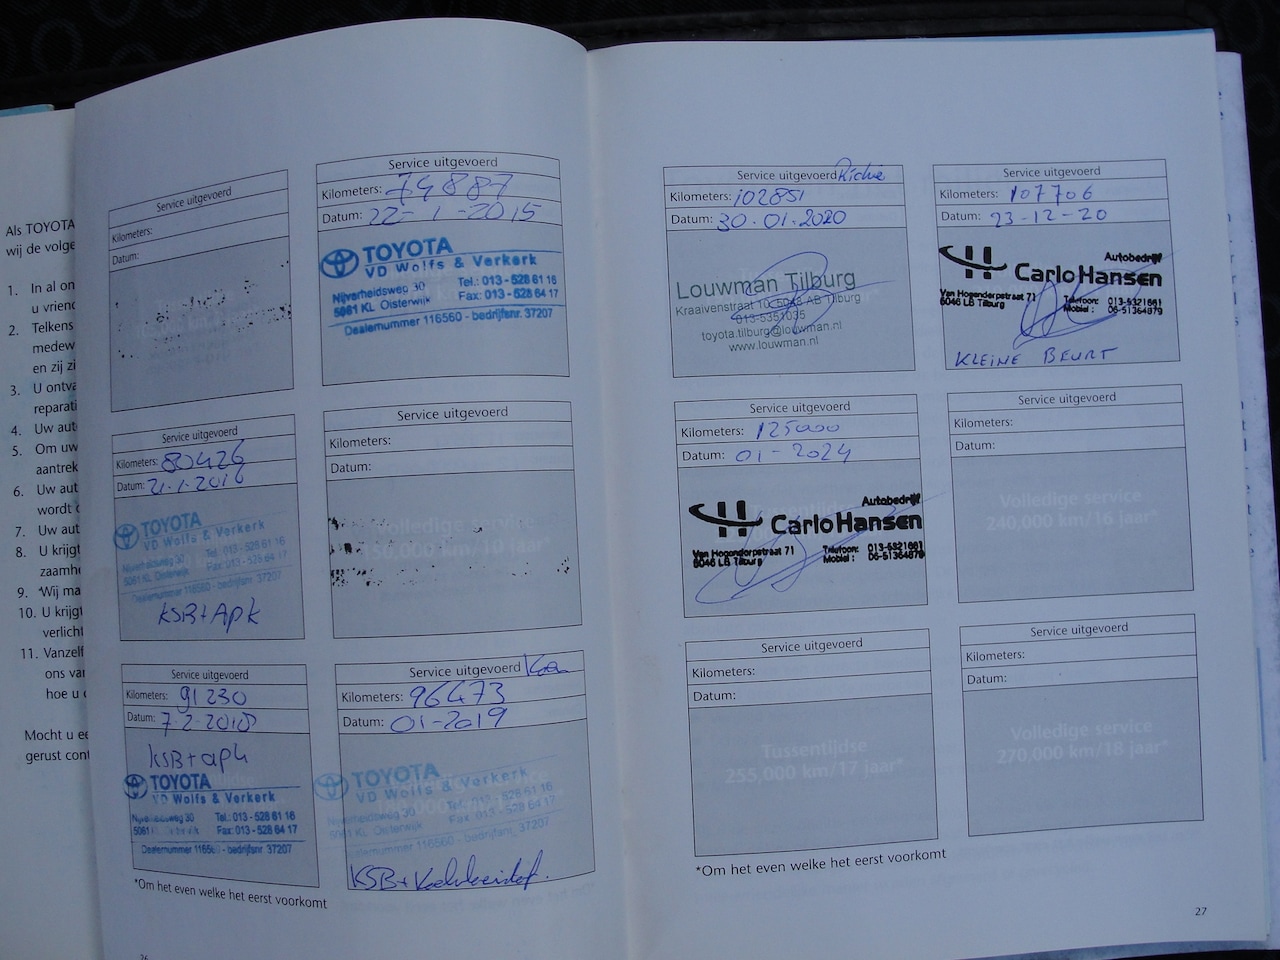 Als TOYOTA
wij de volge
1. In al on
u vriend
2. Telkens
medew
en zij zi
3. U ontva
reparati
4. Uw aut
5. Om uw
aantrek
6. Uw aut
wordt d
7. Uw aut
8. U krijgt
zaamhe
9. Wij ma
10. U krijgt
verlicht
11. Vanzelf
ons van
hoe u d
Mocht u ee
gerust cont
Service uitgevoerd
Kilometers:
Datum:
Service uitgevoerd
Kilometers: 74887
Datum: 22-1-2015
TOYOTA
VD Wolfs & Verkerk
Nijverheidsweg 30 Tel.: 013 - 528 61 16
5061 KL Oisterwijk Fax: 013 - 528 64 17
Dealernummer 116560 - bedrijfsnr. 37207
Service uitgevoerd
Kilometers: 80426
Datum: 21-1-2016
TOYOTA
VD Wolfs & Verkerk
Nijverheidsweg 30 Tel.: 013 - 528 61 16
5061 KL Oisterwijk Fax: 013 - 528 64 17
Dealernummer 116560 - bedrijfsnr. 37207
KSB + Apk
Service uitgevoerd
Kilometers:
Datum:
Volledige service
150,000 km/10 jaar*
Service uitgevoerd
Kilometers: 91230
Datum: 7-2-2018
KSB + apk
TOYOTA
VD Wolfs & Verkerk
Nijverheidsweg 30 Tel.: 013 - 528 61 16
5061 Fax: 013 - 528 64 17
Dealernummer 11656 - bedrijfsnr 37207
Service uitgevoerd
Kilometers: 96473
Datum: 01-2019
TOYOTA
VD Wolfs & Verkerk
Nijverheidsweg 30 Tel.: 013 - 528 61 16
5061 KL Oisterwijk Fax: 013 - 528 64 17
Dealernummer 116560 - bedrijfsnr. 37207
KSB +
*Om het even welke het eerst voorkomt
26
Service uitgevoerd Richie
Kilometers: 102851
Datum: 30.01.2020
Louwman Tilburg
Kraaivenstraat 10, 5048 AB Tilburg
013-5351035
toyota.tilburg@louwman.nl
www.louwman.nl
Service uitgevoerd
Kilometers: 107706
Datum: 23-12-20
Autobedrijf
Carlo Hansen
Van Hogendorpstraat 71 Telefoon: 013-5321661
5046 LB Tilburg Mobiel: 06-51364879
KLEINE BEURT
Service uitgevoerd
Kilometers: 125000
Datum: 01-2024
Autobedrijf
Carlo Hansen
Van Hogendorpstraat 71 Telefoon: 013-5321661
5046 LB Tilburg Mobiel: 06-51364879
Service uitgevoerd
Kilometers:
Datum:
Volledige service
240,000 km/16 jaar*
Service uitgevoerd
Kilometers:
Datum:
Tussentijdse
255,000 km/17 jaar*
Service uitgevoerd
Kilometers:
Datum:
Volledige service
270,000 km/18 jaar*
*Om het even welke het eerst voorkomt
27